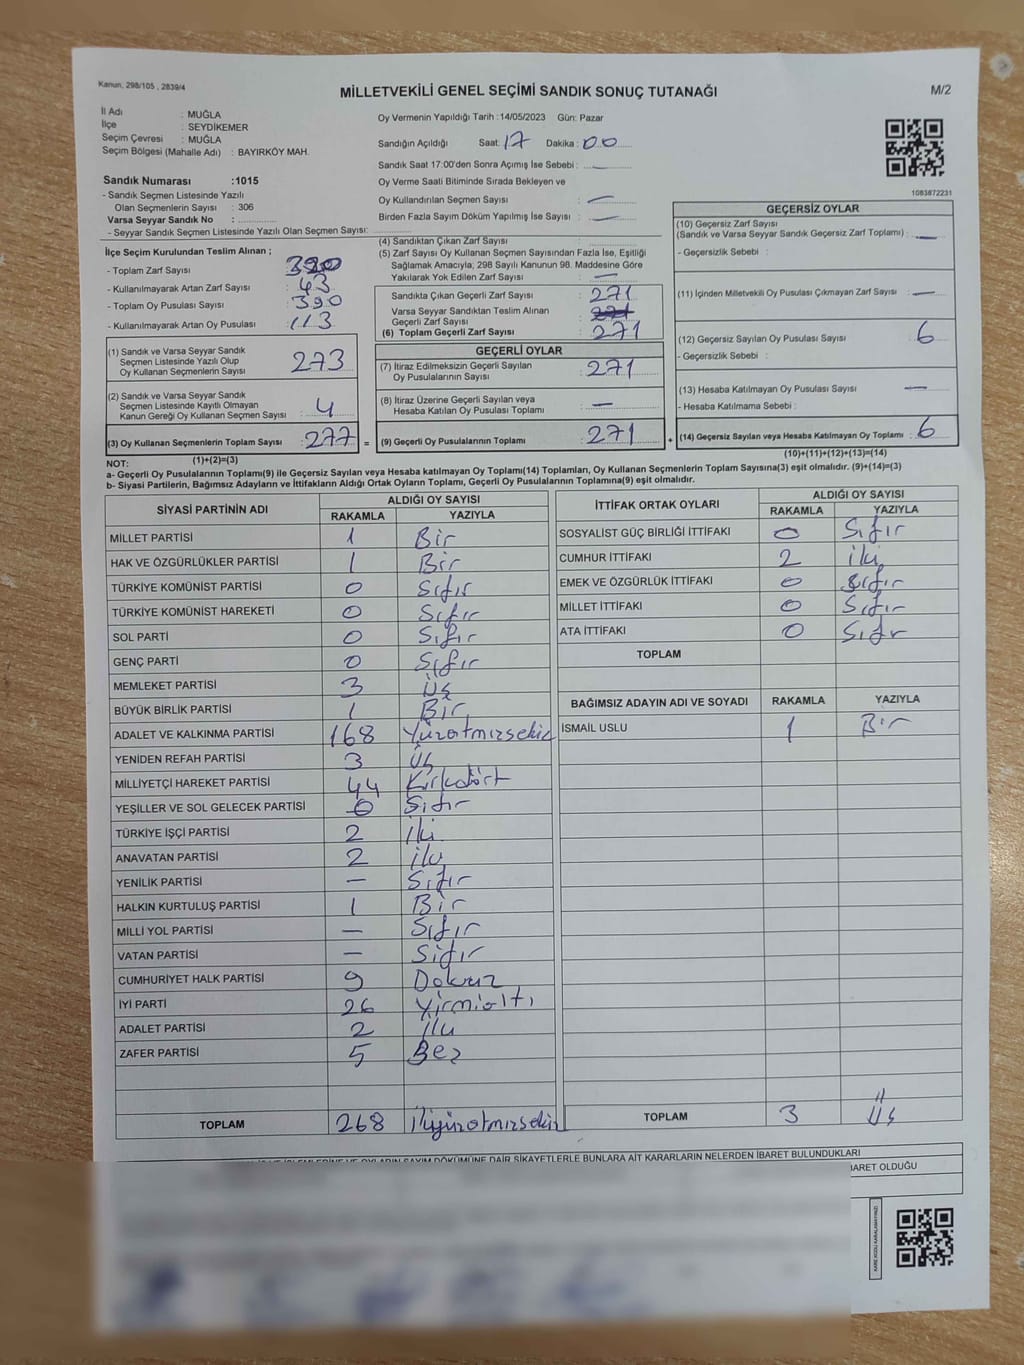 Kanun, 298/105 , 2839/4
MİLLETVEKİLİ GENEL SEÇİMİ SANDIK SONUÇ TUTANAĞI
M/2
İl Adı : MUĞLA
İlçe : SEYDİKEMER
Seçim Çevresi : MUĞLA
Seçim Bölgesi (Mahalle Adı) : BAYIRKÖY MAH.
Oy Vermenin Yapıldığı Tarih :14/05/2023 Gün: Pazar
Sandığın Açıldığı Saat: 17 Dakika : 00
Sandık Saat 17:00'den Sonra Açımış İse Sebebi : —
Sandık Numarası :1015
- Sandık Seçmen Listesinde Yazılı
Olan Seçmenlerin Sayısı : 306
Varsa Seyyar Sandık No :
- Seyyar Sandık Seçmen Listesinde Yazılı Olan Seçmen Sayısı:
Oy Verme Saati Bitiminde Sırada Bekleyen ve
Oy Kullandırılan Seçmen Sayısı : —
Birden Fazla Sayım Döküm Yapılmış İse Sayısı : —
1083872231
İlçe Seçim Kurulundan Teslim Alınan ;
- Toplam Zarf Sayısı : 320
- Kullanılmayarak Artan Zarf Sayısı : 43
- Toplam Oy Pusulası Sayısı : 390
- Kullanılmayarak Artan Oy Pusulası : 113
(1) Sandık ve Varsa Seyyar Sandık
Seçmen Listesinde Yazılı Olup
Oy Kullanan Seçmenlerin Sayısı : 273
(2) Sandık ve Varsa Seyyar Sandık
Seçmen Listesinde Kayıtlı Olmayan
Kanun Gereği Oy Kullanan Seçmen Sayısı : 4
(3) Oy Kullanan Seçmenlerin Toplam Sayısı : 277 =
(1)+(2)=(3)
(4) Sandıktan Çıkan Zarf Sayısı :
(5) Zarf Sayısı Oy Kullanan Seçmen Sayısından Fazla İse, Eşitliği
Sağlamak Amacıyla; 298 Sayılı Kanunun 98. Maddesine Göre
Yakılarak Yok Edilen Zarf Sayısı : —
Sandıkta Çıkan Geçerli Zarf Sayısı : 271
Varsa Seyyar Sandıktan Teslim Alınan
Geçerli Zarf Sayısı : 271
(6) Toplam Geçerli Zarf Sayısı : 271
GEÇERLİ OYLAR
(7) İtiraz Edilmeksizin Geçerli Sayılan
Oy Pusulalarının Sayısı : 271
(8) İtiraz Üzerine Geçerli Sayılan veya
Hesaba Katılan Oy Pusulası Toplamı : —
(9) Geçerli Oy Pusulalarının Toplamı : 271 +
GEÇERSİZ OYLAR
(10) Geçersiz Zarf Sayısı
(Sandık ve Varsa Seyyar Sandık Geçersiz Zarf Toplamı) : —
- Geçersizlik Sebebi :
(11) İçinden Milletvekili Oy Pusulası Çıkmayan Zarf Sayısı : —
(12) Geçersiz Sayılan Oy Pusulası Sayısı : 6
- Geçersizlik Sebebi :
(13) Hesaba Katılmayan Oy Pusulası Sayısı : —
- Hesaba Katılmama Sebebi :
(14) Geçersiz Sayılan veya Hesaba Katılmayan Oy Toplamı : 6
(10)+(11)+(12)+(13)=(14)
NOT:
a- Geçerli Oy Pusulalarının Toplamı(9) ile Geçersiz Sayılan veya Hesaba katılmayan Oy Toplamı(14) Toplamları, Oy Kullanan Seçmenlerin Toplam Sayısına(3) eşit olmalıdır. (9)+(14)=(3)
b- Siyasi Partilerin, Bağımsız Adayların ve İttifakların Aldığı Ortak Oyların Toplamı, Geçerli Oy Pusulalarının Toplamına(9) eşit olmalıdır.
SİYASİ PARTİNİN ADI ALDIĞI OY SAYISI
RAKAMLA YAZIYLA
MİLLET PARTİSİ 1 Bir
HAK VE ÖZGÜRLÜKLER PARTİSİ 1 Bir
TÜRKİYE KOMÜNİST PARTİSİ 0 Sıfır
TÜRKİYE KOMÜNİST HAREKETİ 0 Sıfır
SOL PARTİ 0 Sıfır
GENÇ PARTİ 0 Sıfır
MEMLEKET PARTİSİ 3 Üç
BÜYÜK BİRLİK PARTİSİ 1 Bir
ADALET VE KALKINMA PARTİSİ 168 Yüzatmışsekiz
YENİDEN REFAH PARTİSİ 3 Üç
MİLLİYETÇİ HAREKET PARTİSİ 44 Kırkdört
YEŞİLLER VE SOL GELECEK PARTİSİ 0 Sıfır
TÜRKİYE İŞÇİ PARTİSİ 2 iki
ANAVATAN PARTİSİ 2 iki
YENİLİK PARTİSİ — Sıfır
HALKIN KURTULUŞ PARTİSİ 1 Bir
MİLLİ YOL PARTİSİ — Sıfır
VATAN PARTİSİ — Sıfır
CUMHURİYET HALK PARTİSİ 9 Dokuz
İYİ PARTİ 26 Yirmialtı
ADALET PARTİSİ 2 iki
ZAFER PARTİSİ 5 Beş
TOPLAM 268 ikiyüzatmışsekiz
İTTİFAK ORTAK OYLARI ALDIĞI OY SAYISI
RAKAMLA YAZIYLA
SOSYALİST GÜÇ BİRLİĞİ İTTİFAKI 0 Sıfır
CUMHUR İTTİFAKI 2 iki
EMEK VE ÖZGÜRLÜK İTTİFAKI 0 Sıfır
MİLLET İTTİFAKI 0 Sıfır
ATA İTTİFAKI 0 Sıfır
TOPLAM
BAĞIMSIZ ADAYIN ADI VE SOYADI RAKAMLA YAZIYLA
İSMAİL USLU 1 Bir
TOPLAM 3 Üç
SAYIM DÖKÜMÜNE DAİR ŞİKAYETLERLE BUNLARA AİT KARARLARIN NELERDEN İBARET BULUNDUKLARI
BARET OLDUĞU